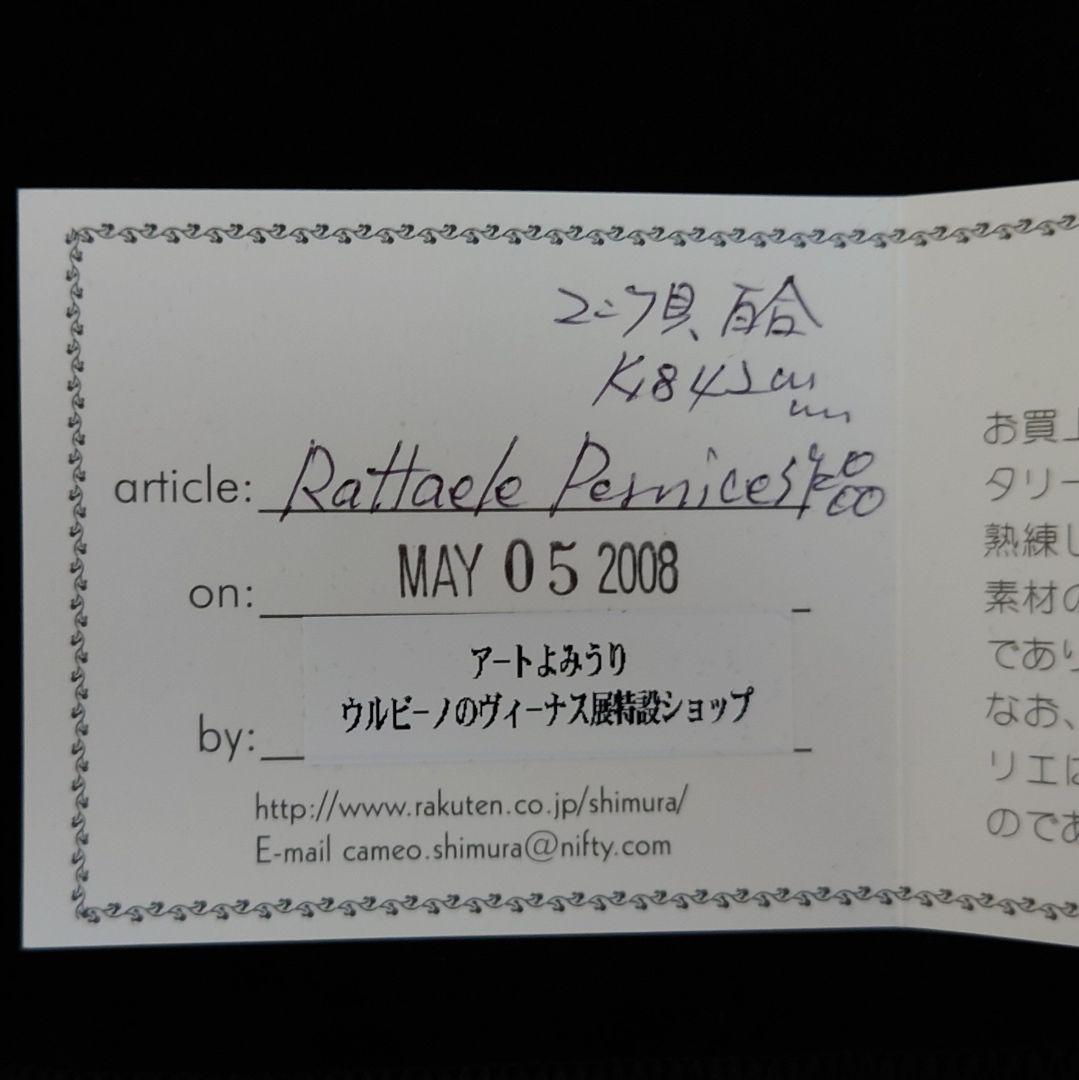 コニク貝、百合
K18
article: Raffaele Pernice作品
on: MAY 05 2008
アートよみうり
ウルビーノのヴィーナス展特設ショップ
by:
http://www.rakuten.co.jp/shimura/
E-mail cameo.shimura@nifty.com
お買上
タリー
熟練し
素材の
であり
なお、
リエは
のであ